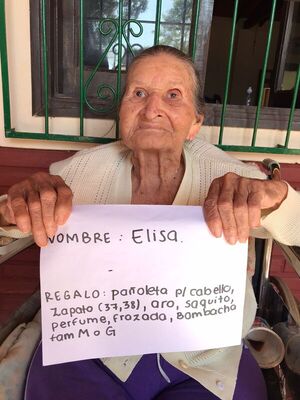 NOMBRE : Elisa.
-
REGALO: pañoleta p/ cabello,
Zapato (37,38), aro, saquito,
perfume, frozada, Bombacha
tam M o G